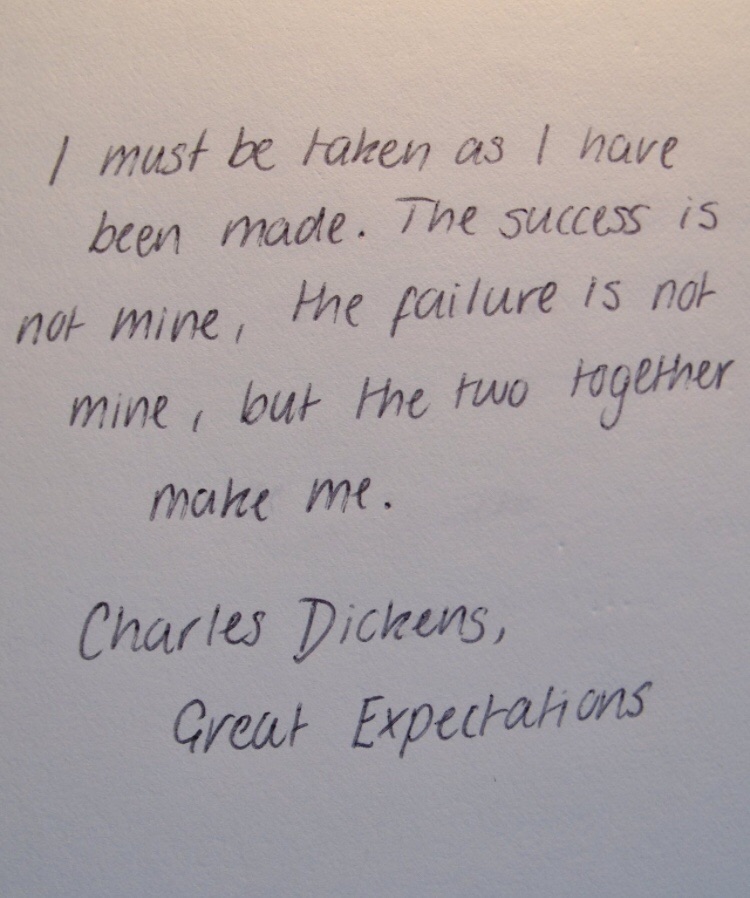 I must be taken as I have
been made. The success is
not mine, the failure is not
mine, but the two together
make me.
Charles Dickens,
Great Expectations